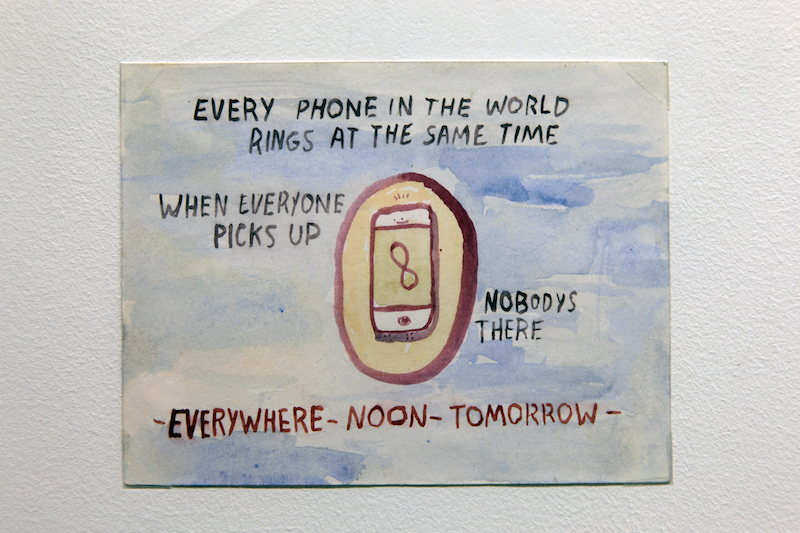 EVERY PHONE IN THE WORLD
RINGS AT THE SAME TIME
WHEN EVERYONE
PICKS UP
8
NOBODYS
THERE
-EVERYWHERE-NOON-TOMORROW-